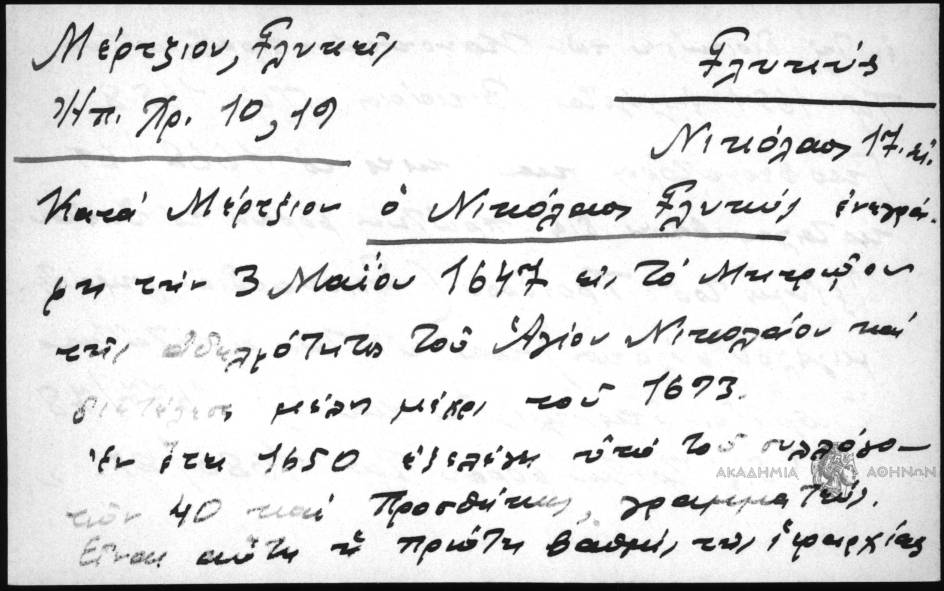 Μέρτζιου, Γλυκεῖς
Ἠπ. Χρ. 10, 19
Γλυκύς
Νικόλαος 17. αἰ.
Κατά Μέρτζιον ὁ Νικόλαος Γλυκύς ἐνεγρά-
φη τήν 3 Μαΐου 1647 εἰς τό Μητρῷον
τῆς ἀδελφότητος τοῦ Ἁγίου Νικολάου καί
διετέλεσε μέλος μέχρι τοῦ 1693.
Ἐν ἔτει 1650 ἐξελέγη ὑπό τοῦ συλλόγου
τῶν 40 καί Προσθήκης, γραμματεύς.
Εἶναι αὕτη ἡ πρώτη βαθμίς τῆς ἱεραρχίας
ΑΚΑΔΗΜΙΑ ΑΘΗΝΩΝ